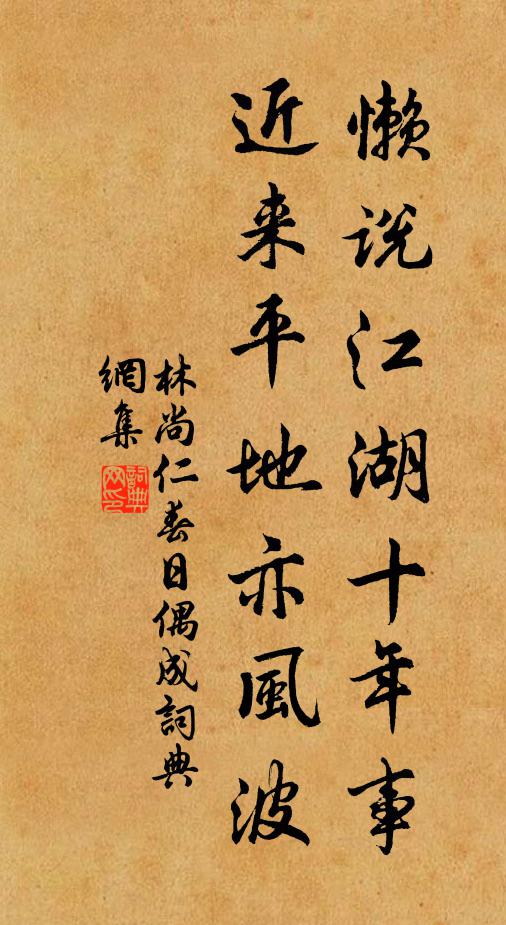 懒说江湖十年事
近来平地亦風波
林尚仁春日偶成詞典
網集
詞典網印